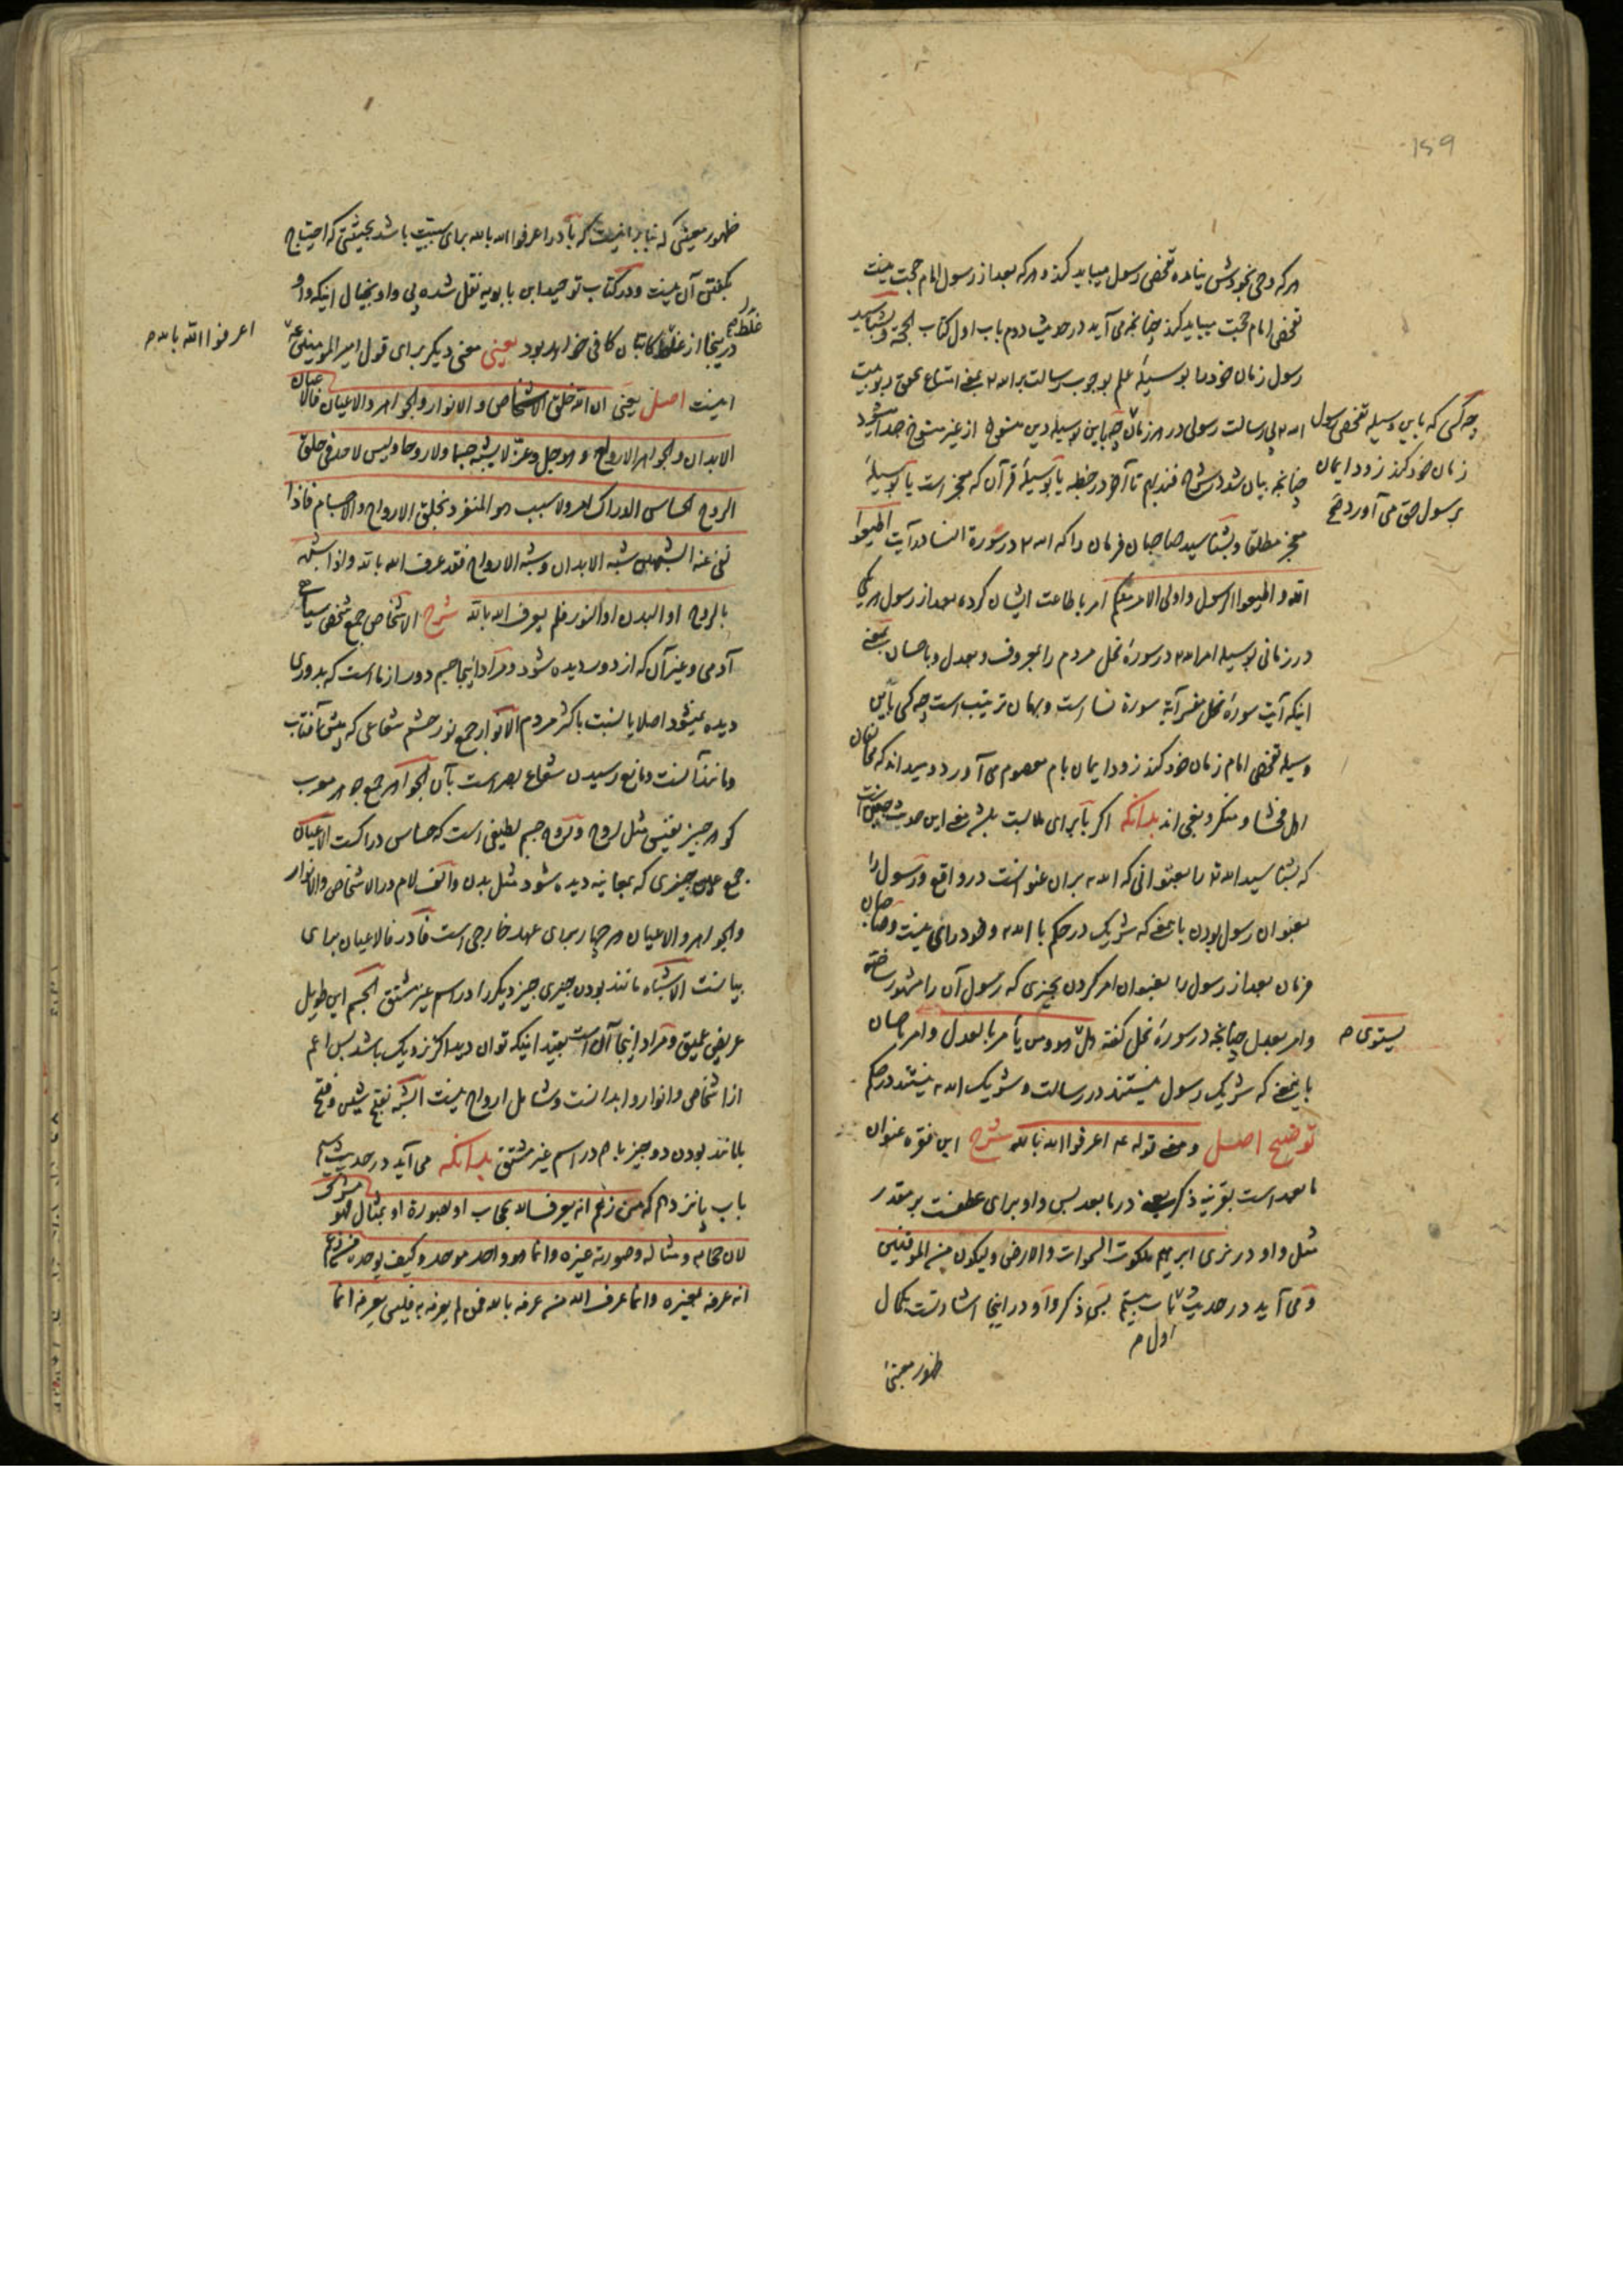 159
هرکه وحی بخودش نیامده تفحص رسول میباید کند و هرکه بعد از رسول امام حجت نیست
تفحص امام حجت میباید کند چنانچه می آید در حدیث دوم باب اول کتاب الحجة و بشناسید
رسول زمان خود را بوسیله علم بوجوب رسالت برالله ۲ بمعنی امتناع تحقق ربوبیت
الله ۲ بی رسالت رسولی در هر زمان چه باین وسیله دین منسوخ از غیر منسوخ جدا میشود
چه کسی که باین وسیله تفحص رسول
زمان خود کند زود ایمان
برسول حق می آورد صح
چنانچه بیان شد در شرح فندبهم تا آخر در خطبه یا بوسیلهٔ قرآن که معجز است یا بوسیلهٔ
معجز مطلقا و بشناسید صاحبان فرمان را که الله ۲ در سورة النسا در آیت اطیعوا
الله و اطیعوا الرسول و اولی الامر منکم امر باطاعت ایشان کرده بعد از رسول هر یک
در زمانی بوسیله امر الله ۲ در سورهٔ نحل مردم را بمعروف و بعدل و باحسان بمعنی
اینکه آیت سورهٔ نحل مفسر آیة سورة نسا است و بهمان ترتیب است چه کسی باین
وسیله تفحص امام زمان خود کند زود ایمان بامام معصوم می آورد و میداند که مخالفان
اهل فحشا و منکر و بغی اند بدانکه اگر با برای ملابست باشد معنی این حدیث چنین است
که بشناسید الله تع را بعنوانی که الله ۲ بر آن عنوانست در واقع و رسول را
بعنوان رسول بودن باین معنی که شریک در حکم با الله ۲ و خود رای نیست و صاحبان
فرمان بعد از رسول را بعنوان امر کردن بچیزی که رسول آن را مشهور ساخته
و امر بعدل چنانچه در سورهٔ نحل گفته هل هو و من یأمر بالعدل و امر باحسان
یستوی م
باینمعنی که شریک رسول نیستند در رسالت و شریک الله ۲ نیستند در حکم
توضیح اصل و معنی قوله ع اعرفوا الله بالله شرح این فقره عنوان
مابعد است بقرینه ذکر یعنی در مابعد پس واو برای عطفست بر مقدر
مثل واو در نری ابراهیم ملکوت السموات والارض ولیکون من الموقنین
و می آید در حدیث باب بیستم پس ذکر واو در اینجا اشارتست بکمال
اول م
ظهور معنی
ظهور معنیی که بنابر اینست که با در اعرفوا الله بالله برای سببیت باشد بحیثیتی که احتیاج
بگفتن آن نیست و در کتاب توحید ابن بابویه نقل شده بی واو بخیال اینکه واو
در اینجا از غلط کاتبان کافی خواهد بود یعنی معنی دیگر برای قول امیر المومنین ع
غلط صح
اعرفوا الله بالله م
اینست اصل یعنی ان الله خلق الاشخاص والانوار والجواهر والاعیان فالاعیان
الابدان والجواهر الارواح و هو جل وعز لا یشبه جسما ولا روحا ولیس لاحد فی خلق
الروح الحساس الدراک امر ولا سبب هو المتفرد بخلق الارواح والاجسام فاذا
نفی عنه الشبهین شبه الابدان وشبه الارواح فقد عرف الله بالله واذا شبهه
بالروح او البدن او النور فلم یعرف الله بالله شرح الاشخاص جمع شخص سیاهی
آدمی و غیر آن که از دور دیده شود و مراد اینجا جسم دور از ما است که بدوری
دیده نمیشود اصلا یا بنسبت باکثر مردم الانوار جمع نور چشم شعاعی که پیش آفتاب
و مانند آنست و مانع رسیدن شعاع بصر است بآن الجواهر جمع جوهر معرب
گوهر چیز نفیس مثل روح و روح جسم لطیفی است که حساس دراکست الاعیان
جمع عین چیزی که بمعاینه دیده شود مثل بدن و الف لام در الاشخاص والانوار
والجواهر والاعیان هر چهار برای عهد خارجی است فا در فالاعیان برای
بیانست الاشباه مانند بودن چیزی چیز دیگر را در اسم غیر مشتق الجسم این طویل
عریض عمیق و مراد اینجا آن است بقید اینکه توان دید اگر نزدیک باشد پس اعم
از اشخاص و انوار و ابدانست و شامل ارواح نیست الشبه بفتح شین و فتح
با مانند بودن دو چیز باهم در اسم غیر مشتق بدانکه می آید در حدیث
باب پانزدهم که من زعم انه یعرف الله بحجاب او بصورة او بمثال فهو مشرک
لان حجابه ومثاله وصورته غیره وانما هو واحد موحد وکیف یوحده من زعم
انه عرفه بغیره وانما عرف الله من عرفه بالله فمن لم یعرفه به فلیس یعرفه انما